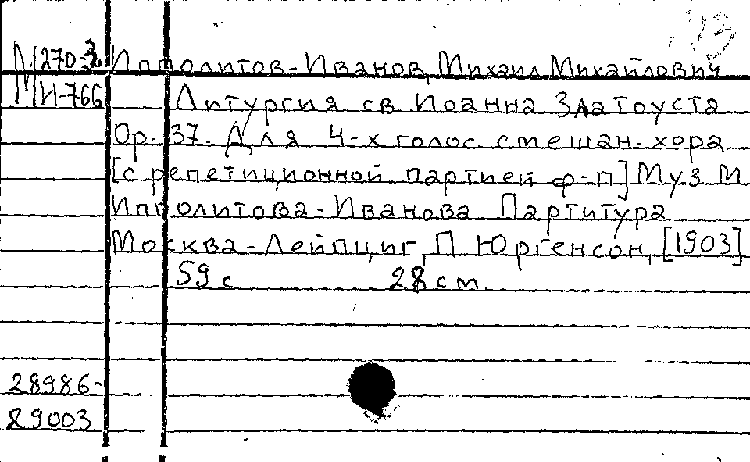 М 270-2 Ипполитов-Иванов, Михаил Михайлович
МИ-766 Литургия св. Иоанна Златоуста
Ор. 37. Для 4-х голос. смешан. хора
[с репетиционной партией ф-п] Муз. М.
Ипполитова-Иванова Партитура
Москва-Лейпциг, П. Юргенсон, [1903]
59 с. 28 см.
28986-
89003